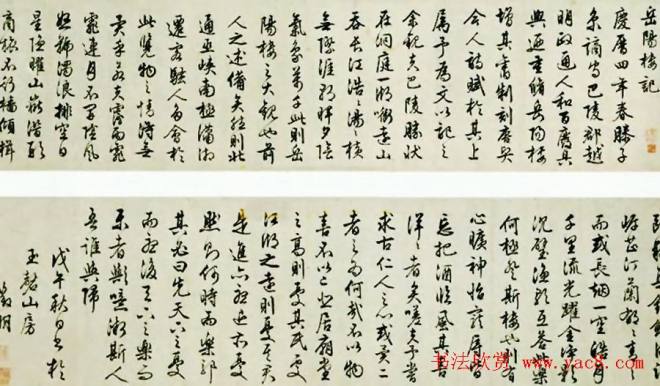 岳陽樓記
慶曆四年春滕子
京謫守巴陵郡越
明政通人和百廢具
興迺重脩岳陽樓
增其舊制刻唐賢
今人詩賦於其上
屬予為文以記之
余觀夫巴陵勝狀
在洞庭一湖銜遠山
吞長江浩浩湯湯橫
無際涯朝暉夕陰
氣象萬千此則岳
陽樓之大觀也前
人之述備矣然則北
通巫峽南極瀟湘
遷客騷人多會於
此覽物之情得無
異乎若夫霪雨霏
霏連月不開陰風
怒號濁浪排空日
星隱耀山嶽潛形
商旅不行檣傾楫
岸芷汀蘭郁郁青
而或長煙一空皓月
千里流光耀金靜影
沉璧漁歌互答此樂
何極登斯樓也則有
心曠神怡寵辱皆
忘把酒臨風其喜
洋洋者矣嗟夫予嘗
求古仁人之心或異二
者之為何哉不以物
喜不以己悲居廟堂
之高則憂其民處
江湖之遠則憂其君
是進亦憂退亦憂
然則何時而樂耶
其必曰先天下之憂
而憂後天下之樂而
樂者歟噫微斯人
吾誰與歸
戊午秋日書於
玉磬山房
徵明
书法欣赏 www.yac8.com